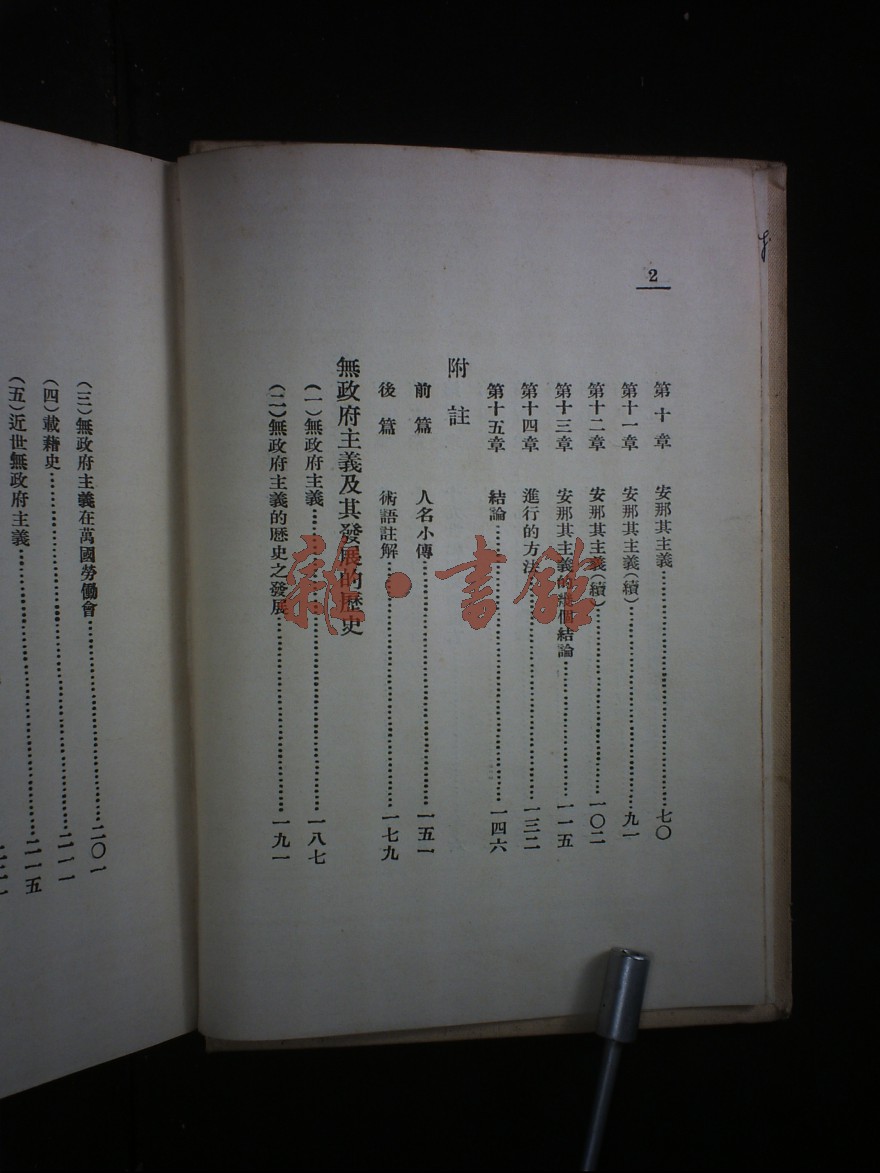 2
第十章 安那其主義……七〇
第十一章 安那其主義(續)……九一
第十二章 安那其主義(續)……一〇二
第十三章 安那其主義的幾個結論……一一五
第十四章 進行的方法……一三二
第十五章 結論……一四六
附註
前篇 人名小傳……一五一
後篇 術語註解……一七九
無政府主義及其發展的歷史
(一)無政府主義……一八七
(二)無政府主義的歷史之發展……一九一
(三)無政府主義在萬國勞働會……二〇一
(四)載藉史……二一一
(五)近世無政府主義……二一五
雜·書館